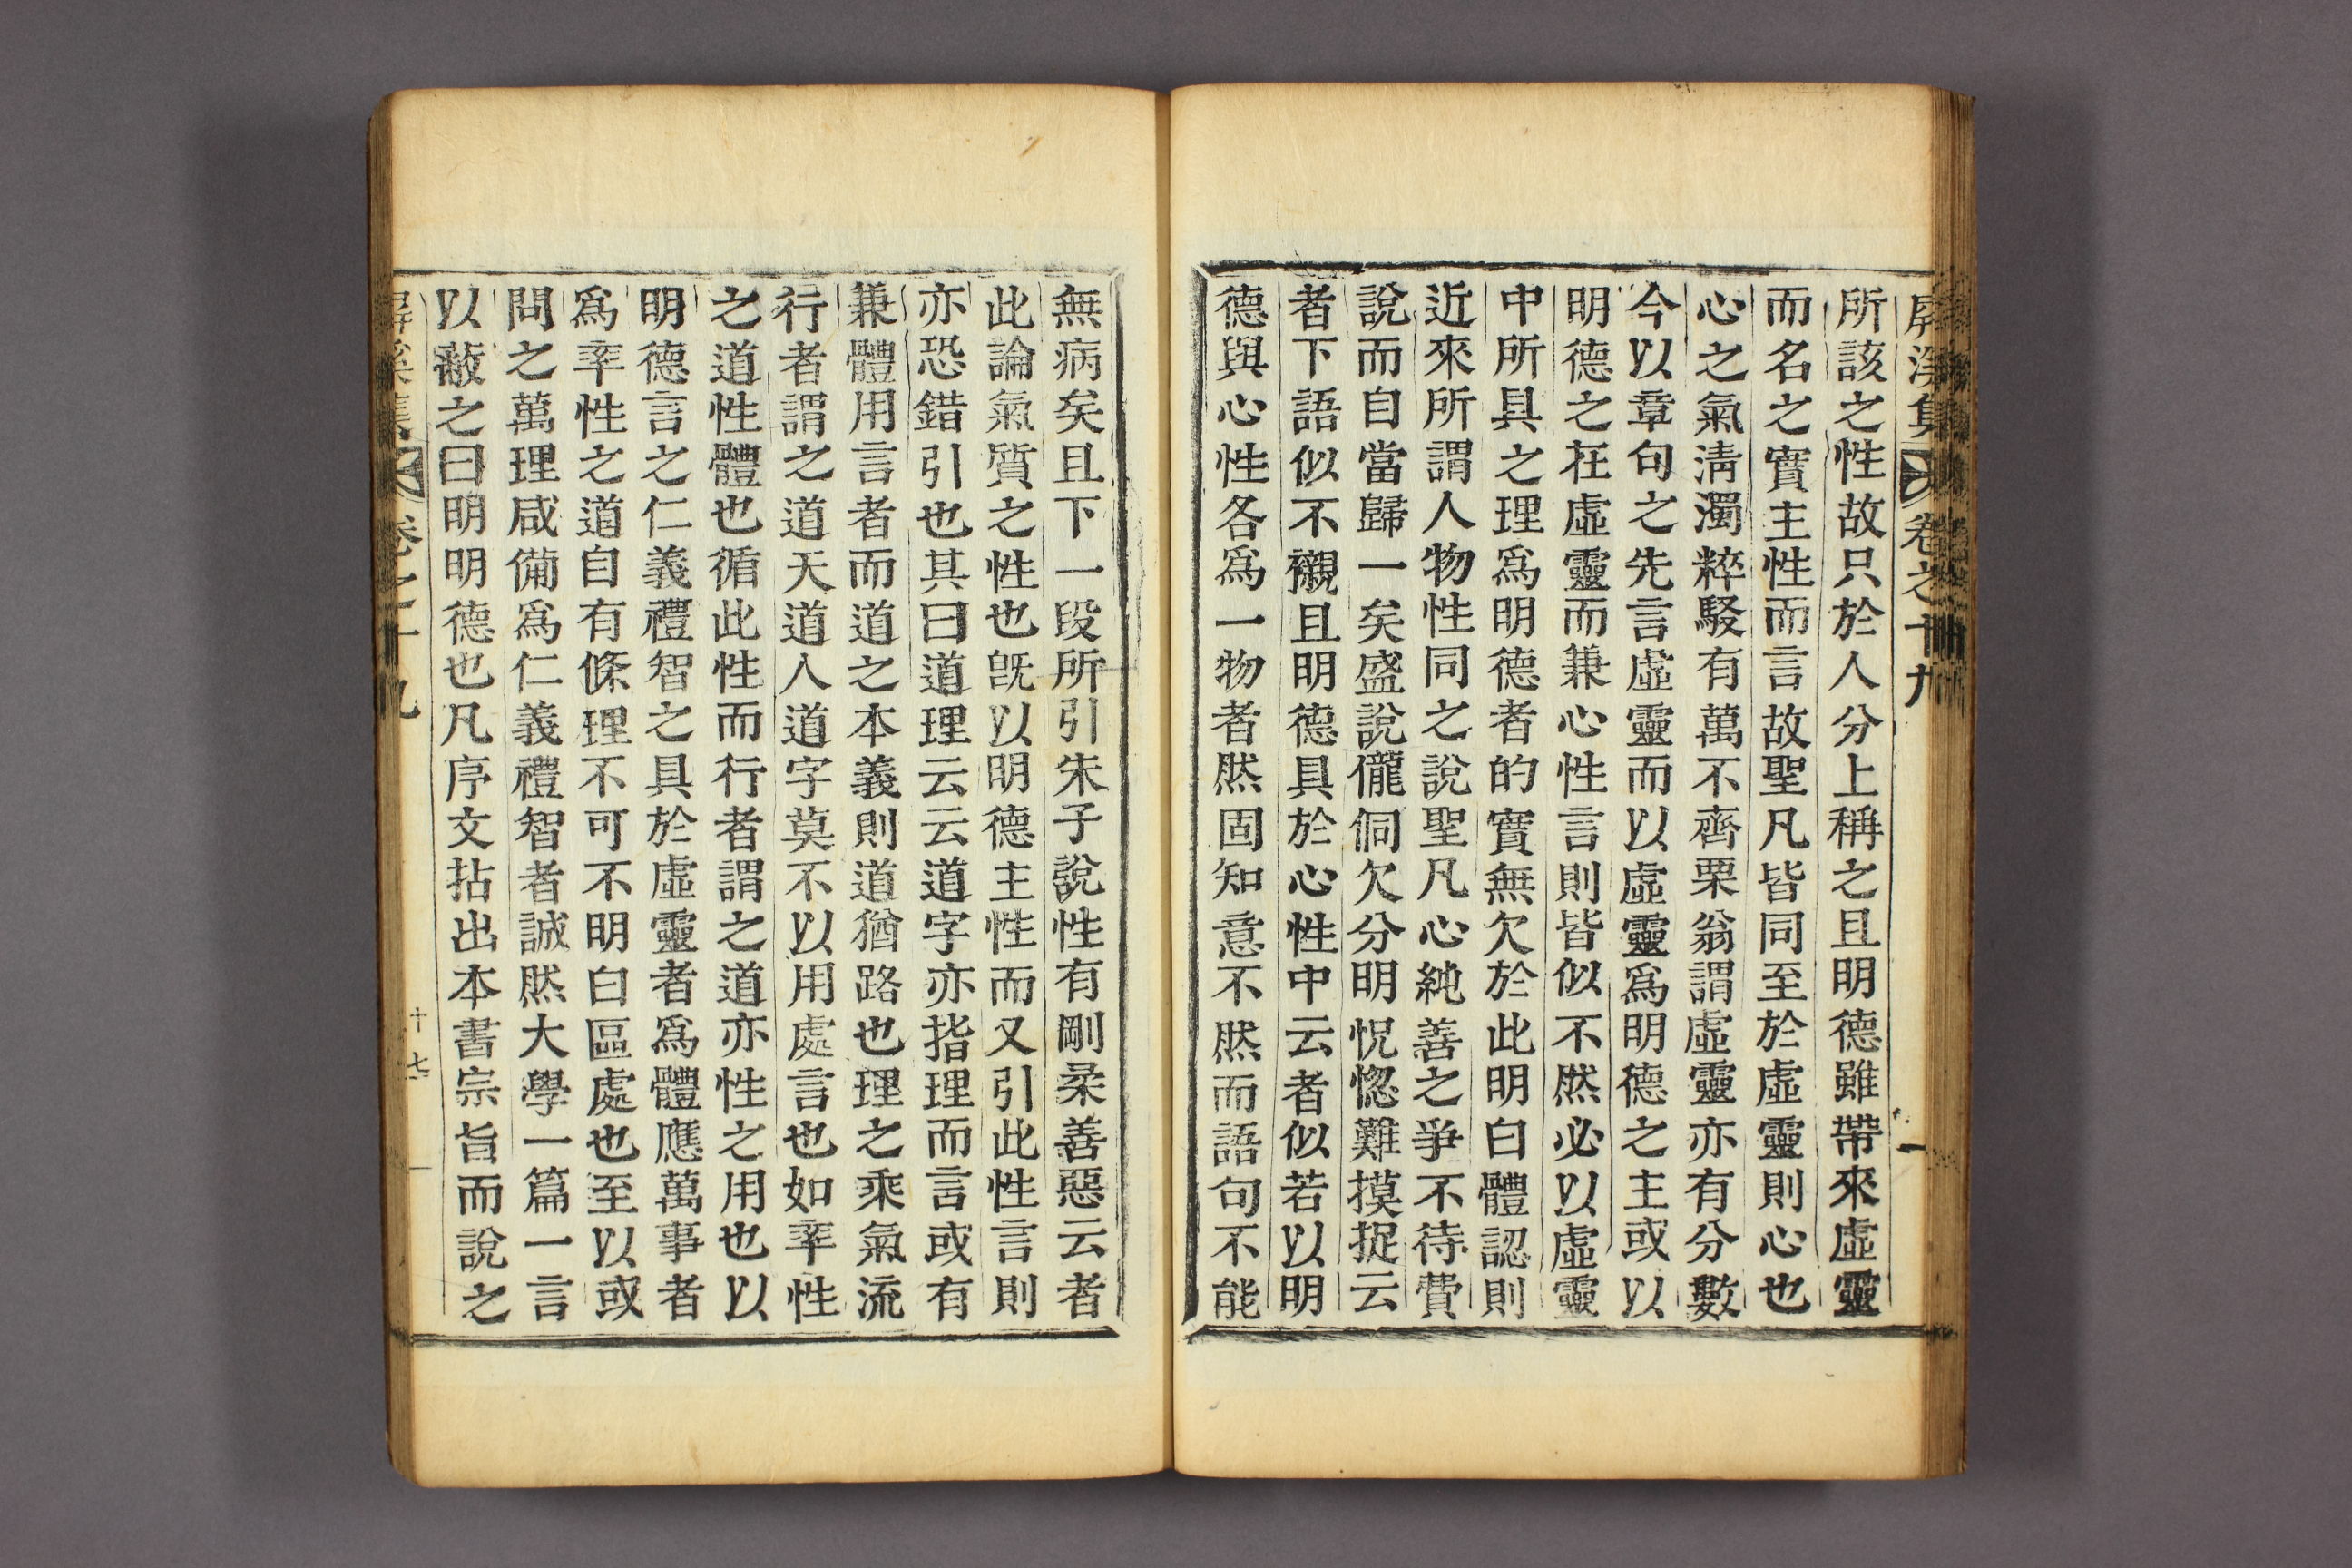 屛溪集 卷之十九
所該之性故只於人分上稱之且明德雖帶來虛靈
而名之實主性而言故聖凡皆同至於虛靈則心也
心之氣淸濁粹駁有萬不齊栗翁謂虛靈亦有分數
今以章句之先言虛靈而以虛靈爲明德之主或以
明德之在虛靈而兼心性言則皆似不然必以虛靈
中所具之理爲明德者的實無欠於此明白體認則
近來所謂人物性同之說聖凡心純善之爭不待費
說而自當歸一矣盛說儱侗欠分明怳惚難摸捉云
者下語似不襯且明德具於心性中云者似若以明
德與心性各爲一物者然固知意不然而語句不能
無病矣且下一段所引朱子說性有剛柔善惡云者
此論氣質之性也旣以明德主性而又引此性言則
亦恐錯引也其曰道理云云道字亦指理而言或有
兼體用言者而道之本義則道猶路也理之乘氣流
行者謂之道天道人道道字莫不以用處言也如率性
之道性體也循此性而行者謂之道亦性之用也以
明德言之仁義禮智之具於虛靈者爲體應萬事者
爲率性之道自有條理不可不明白區處也至以或
問之萬理咸備爲仁義禮智者誠然大學一篇一言
以蔽之曰明明德也凡序文拈出本書宗旨而說之
屛溪集 卷之十九 十七